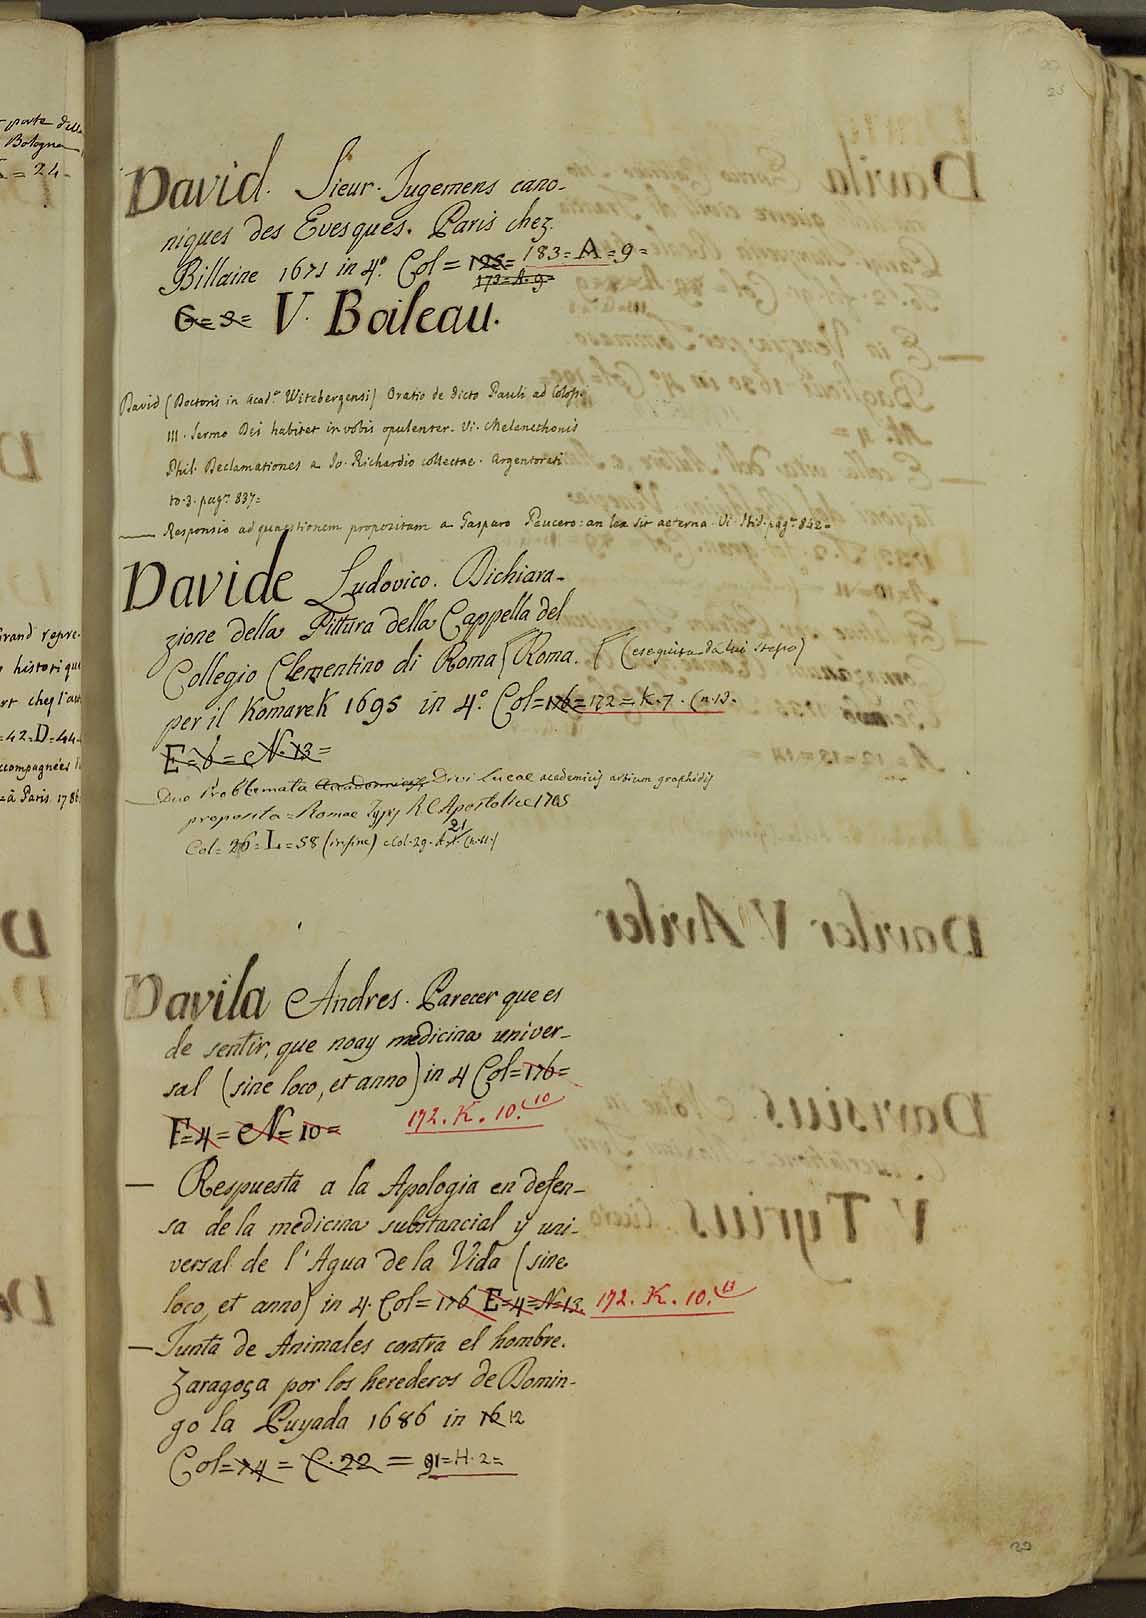 porta della
Bologna
= 24 -
Grand repre-
histori que
art chez l'au
= 42 = D = 44 -
accompagnées
= à Paris 178
David. Sieur. Jugemens cano-
niques des Evesques. Paris chez.
Billaine 1671 in 4º. Col = 125 = 183 = A = 9 =
173 = A. 9 =
6 = 3 = V. Boileau.
David (Doctoris in Acad.ª Witebergensi) Oratio de dicto Pauli ad Colops.
III. Sermo Dei habitet in vobis opulenter. Vi. Melancthonis
Phil. Declamationes a Jo. Richardio collectae. Argentorati
to. 3. pag.ª 837 =
— Responsio ad quaestionem propositam a Gasparo Peucero: an lex sit aeterna. Vi. Ibid. pag.ª 842 =
Davide Ludovico. Dichiara-
zione della Pittura della Cappella del
Collegio Clementino di Roma (Roma. (eseguita da lui stesso)
per il Komarek 1695 in 4º. Col = 176 = 172 = K. 7. (n. 13.
E = 6 = N. 13 =
— Duo Problemata Academicis Divi Lucae academicis artium graphidis
proposita = Romae Typis R C Apostolice 1705
21
Col = 26 = L = 58 (in fine) Col. 29. A
Davila Andres. Parecer que es
de sentir, que noay medicina univer-
sal (sine loco, et anno) in 4 Col = 176 =
E = 4 = N = 10 = 172. K. 10. 10
— Respuesta a la Apologia en defen-
sa de la medicina substancial y uni-
versal de l'Agua de la Vida (sine
loco, et anno) in 4. Col = 176 E = 4 = N = 13. 172. K. 10. 13
— Junta de Animales contra el hombre.
Zaragoça por los herederos de Domin-
go la Puyada 1686 in 16 12
Col = 14 = C. 22 = 91 = H. 2 =